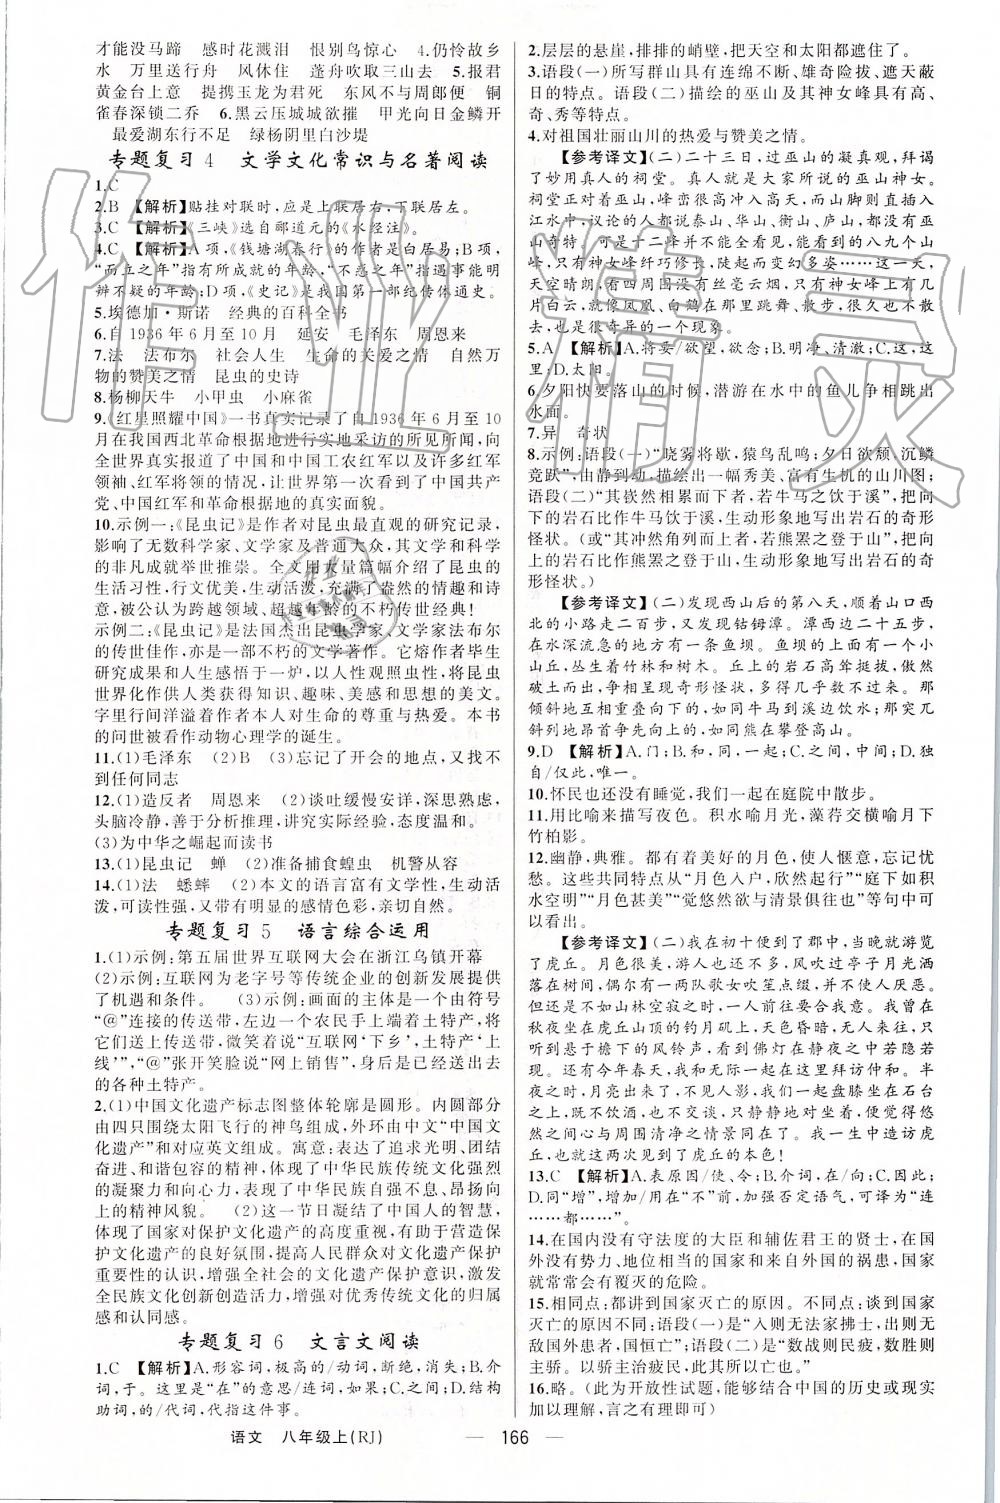 才能没马蹄　感时花溅泪　恨别鸟惊心　4.仍怜故乡
水　万里送行舟　风休住　蓬舟吹取三山去　5.报君
黄金台上意　提携玉龙为君死　东风不与周郎便　铜
雀春深锁二乔　6.黑云压城城欲摧　甲光向日金鳞开
最爱湖东行不足　绿杨阴里白沙堤
专题复习4　文学文化常识与名著阅读
1.C
2.B　【解析】贴挂对联时,应是上联居右,下联居左。
3.C　【解析】《三峡》选自郦道元的《水经注》。
4.C　【解析】A项,《钱塘湖春行》的作者是白居易;B项,
“而立之年”指有所成就的年龄,“不惑之年”指遇事能明
辨不疑的年龄;D项,《史记》是我国第一部纪传体通史。
5.埃德加·斯诺　经典的百科全书
6.自1936年6月至10月　延安　毛泽东　周恩来
7.法　法布尔　社会人生　生命的关爱之情　自然万
物的赞美之情　昆虫的史诗
8.杨柳天牛　小甲虫　小麻雀
9.《红星照耀中国》一书真实记录了自1936年6月至10
月在我国西北革命根据地进行实地采访的所见所闻,向
全世界真实报道了中国和中国工农红军以及许多红军
领袖、红军将领的情况,让世界第一次看到了中国共产
党、中国红军和革命根据地的真实面貌。
10.示例一:《昆虫记》是作者对昆虫最直观的研究记录,
影响了无数科学家、文学家及普通大众,其文学和科学
的非凡成就举世推崇。全文用大量篇幅介绍了昆虫的
生活习性,行文优美,生动活泼,充满了盎然的情趣和诗
意,被公认为跨越领域、超越年龄的不朽传世经典!
示例二:《昆虫记》是法国杰出昆虫学家、文学家法布尔
的传世佳作,亦是一部不朽的文学著作。它熔作者毕生
研究成果和人生感悟于一炉,以人性观照虫性,将昆虫
世界化作供人类获得知识、趣味、美感和思想的美文。
字里行间洋溢着作者本人对生命的尊重与热爱。本书
的问世被看作动物心理学的诞生。
11.(1)毛泽东　(2)B　(3)忘记了开会的地点,找不
到任何同志
12.(1)造反者　周恩来　(2)谈吐缓慢安详,深思熟虑,
头脑冷静,善于分析推理,讲究实际经验,态度温和。
(3)为中华之崛起而读书
13.(1)昆虫记　蝉　(2)准备捕食蝗虫　机警从容
14.(1)法　蟋蟀　(2)本文的语言富有文学性,生动活
泼,可读性强,又带有明显的感情色彩,亲切自然。
专题复习5　语言综合运用
1.(1)示例:第五届世界互联网大会在浙江乌镇开幕
(2)示例:互联网为老字号等传统企业的创新发展提供
了机遇和条件。　(3)示例:画面的主体是一个由符号
“@”连接的传送带,左边一个农民手上端着土特产,将
它们送上传送带,微笑着说“互联网‘下乡’,土特产‘上
线’”,“@”张开笑脸说“网上销售”,身后是已经送出去
的各种土特产。
2.(1)中国文化遗产标志图整体轮廓是圆形。内圆部分
由四只围绕太阳飞行的神鸟组成,外环由中文“中国文
化遗产”和对应英文组成。寓意:表达了追求光明、团结
奋进、和谐包容的精神,体现了中华民族传统文化强烈
的凝聚力和向心力,表现了中华民族自强不息、昂扬向
上的精神风貌。　(2)这一节日凝结了中国人的智慧,
体现了国家对保护文化遗产的高度重视,有助于营造保
护文化遗产的良好氛围,提高人民群众对文化遗产保护
重要性的认识,增强全社会的文化遗产保护意识,激发
全民族文化创新创造活力,增强对优秀传统文化的归属
感和认同感。
专题复习6　文言文阅读
1.C　【解析】A.形容词,极高的/动词,断绝,消失;B.介
词,于。这里是“在”的意思/连词,如果;C.之间;D.结构
助词,的/代词,代指这件事。
2.层层的悬崖,排排的峭壁,把天空和太阳都遮住了。
3.语段(一)所写群山具有连绵不断、雄奇险拔、遮天蔽
日的特点。语段(二)描绘的巫山及其神女峰具有高、
奇、秀等特点。
4.对祖国壮丽山川的热爱与赞美之情。
【参考译文】(二)二十三日,过巫山的凝真观,拜谒
了妙用真人的祠堂。真人就是大家所说的巫山神女。
祠堂正对着巫山,峰峦高得冲入高天,而山脚则直插入
江水中,议论的人都说泰山、华山、衡山、庐山,都没有
巫山奇特。可是十二峰并不能全看见,所见到的八九个山
峰,只有神女峰纤巧修长,陡峭而富于变幻……这一天,
天空晴朗,看四周围没有丝毫云烟,只有神女峰上有几
片白云,就像凤凰、白鹤在那里跳舞、散步,很久也不散
去,也是很奇异的一个现象。
5.A　【解析】A.将要/欲望,欲念;B.明净、清澈;C.这,这
里;D.太阳。
6.夕阳快要落山的时候,潜游在水中的鱼儿争相跳出
水面。
7.异　奇状
8.示例:语段(一)“晓雾将歇,猿鸟乱鸣;夕日欲颓,沉鳞
竞跃”,由静到动,描绘出一幅秀美、富有生机的山川图;
语段(二)“其嵚然相累而下者,若牛马之饮于溪”,把向
下的岩石比作牛马饮于溪,生动形象地写出岩石的奇形
怪状。(或“其冲然角列而上者,若熊罴之登于山”,把向
上的岩石比作熊罴之登于山,生动形象地写出岩石的奇
形怪状。)
【参考译文】(二)发现西山后的第八天,顺着山口西
北的小路走二百步,又发现了钴鉧潭。潭西二十五步,
在水深流急的地方有一条鱼坝。鱼坝的上面有一个小
山丘,丛生着竹林和树木。丘上的岩石高耸挺拔,破土
而出,争相呈现奇形怪状,多得几乎数不过来。那些
倾斜地互相重叠向下的,如同牛马到溪边饮水;那些兀
斜列地昂首争先向上的,如同熊在攀登高山。
9.D　【解析】A.门;B.和,同,一起;C.之间,中间;D.独
自/仅此,唯一。
10.怀民也还没有睡觉,我们一起在庭院中散步。
11.用比喻来描写夜色。积水喻月光,藻荇交横喻月下
竹柏影。
12.幽静,典雅。都有着美好的月色,使人惬意,忘记忧
愁。这些共同特点从“月色入户,欣然起行”“庭下如积
水空明”“月色甚美”“觉悠然欲与清景俱往也”等句中可
以看出。
【参考译文】(二)我在初十便到了郡中,当晚就游览
了虎丘。月色很美,游人还很少,风吹过亭子月光洒
落在树间,偶尔有一两队歌女吹笙点缀,并不使人厌恶。
但还是不如山林空寂之时,一人前往更合我意。我曾在
秋夜坐在虎丘山顶的钓月矶上,天色昏暗,无人来往,只
听到悬于檐下的风铃声,看到佛灯在静夜之中若隐若
现。还有今年春天,我和无际一起在这里拜访仲和。半
夜之时,月亮出来了,但四周无人,我们一起盘膝坐在石台
之上,既不饮酒,也不说话,只静静地对坐着,就觉得悠
然之间心与周围清净之情景同在了。我一生中造访虎
丘,也就这两次见到了虎丘的本色!
13.C　【解析】A.表原因/使、令;B.介词,在;C.因此;
D.同“增”,增加/用在“不”前,加强否定语气,可译为“连
……都……”。
14.在国内没有守法度的大臣和辅佐君王的贤士,在国
外没有势力、地位相当的国家和外来侵犯的忧患,国家
就常常会有覆灭的危险。
15.相同点:都讲到国家灭亡的原因。不同点:谈到国家
灭亡的原因不同。语段(一)是“入则无法家拂士,出则
无敌国外患者,国恒亡”;语段(二)是“数战则民疲,数胜则
主骄。以骄主治疲民,此其所以亡也。”
16.略。(此为开放性试题,能够结合中国的历史或现实
加以理解,言之有理即可)
语文　八年级上(RJ)　— 166 —
作业精灵